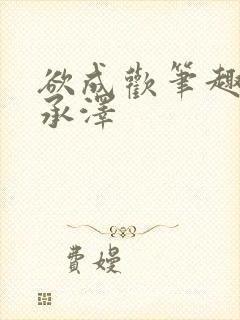 欲成歡筆趣
承澤
費嫚